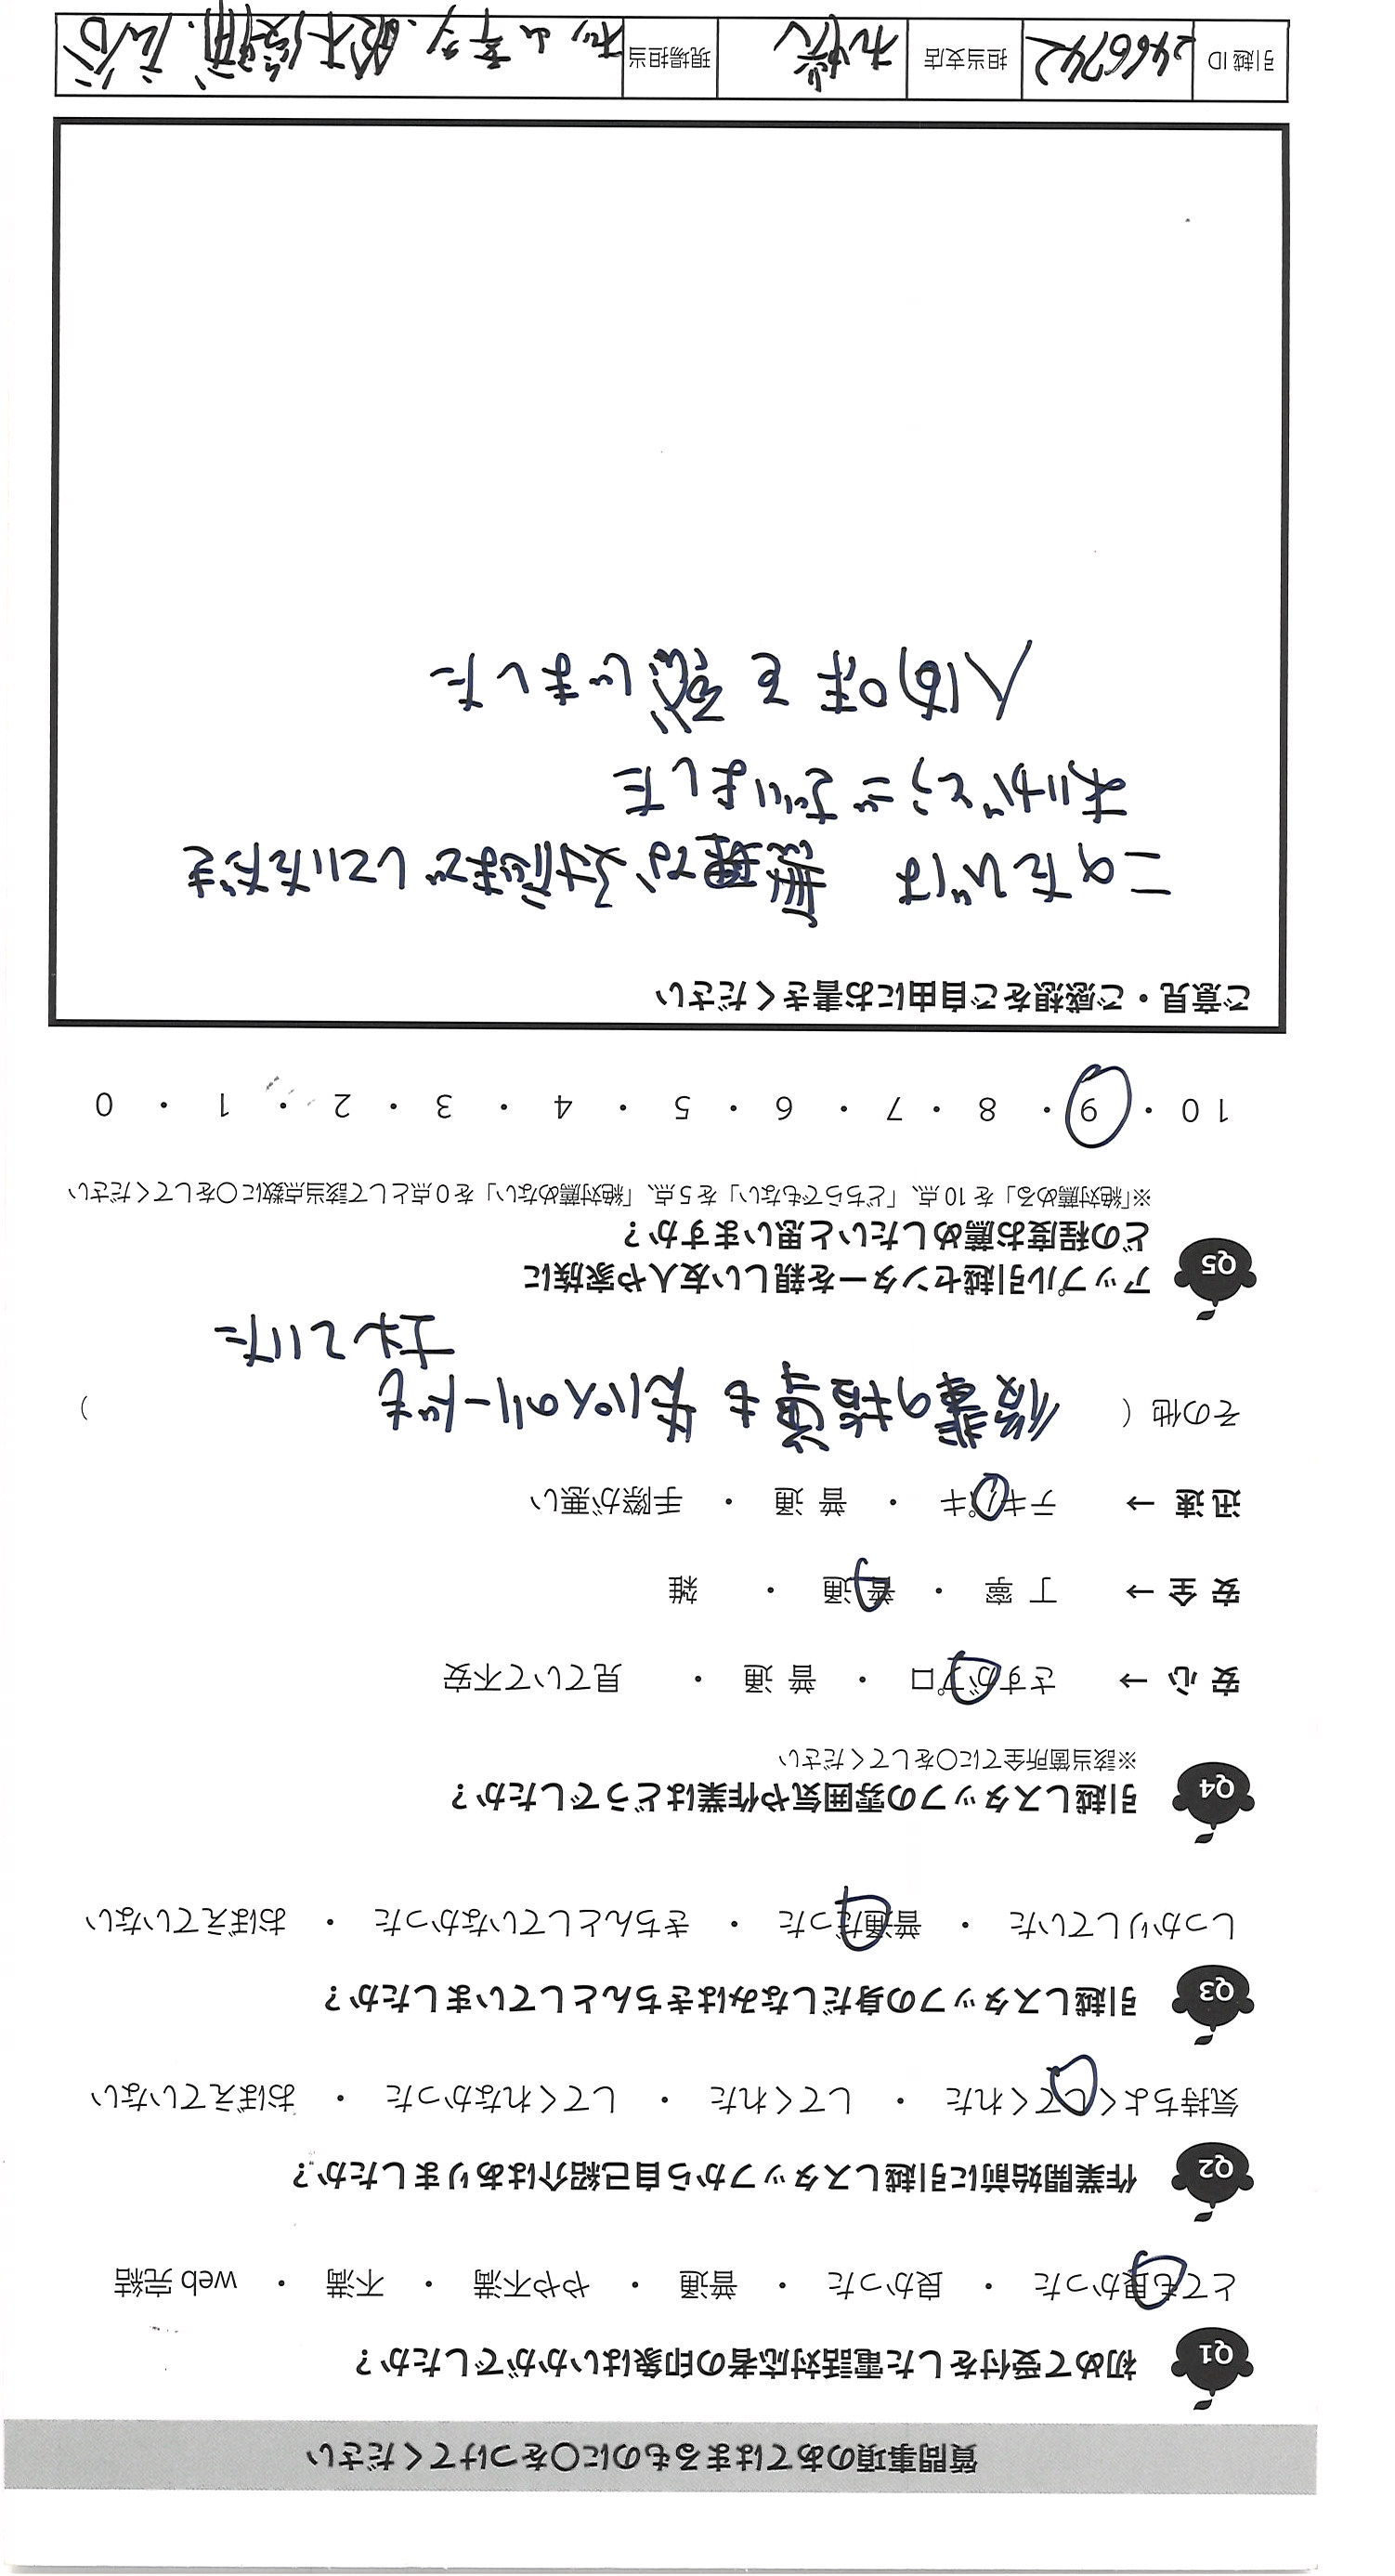 質問事項のあてはまるものに〇をつけてください
Q1 初めて受付をした電話対応者の印象はいかがでしたか？
とても良かった ・ 良かった ・ 普通 ・ やや不満 ・ 不満 ・ web 完結
Q2 作業開始前に引越しスタッフから自己紹介はありましたか？
気持ちよくしてくれた ・ してくれた ・ してくれなかった ・ おぼえていない
Q3 引越しスタッフの身だしなみはきちんとしていましたか？
しっかりしていた ・ 普通だった ・ きちんとしていなかった ・ おぼえていない
Q4 引越しスタッフの雰囲気や作業はどうでしたか？
※該当箇所全てに〇をしてください
安 心 → さすがプロ ・ 普 通 ・ 見ていて不安
安 全 → 丁 寧 ・ 普 通 ・ 雑
迅 速 → テキパキ ・ 普 通 ・ 手際が悪い
その他 （ 後輩の指導も 先パイのリードも ）
Q5 アップル引越センターを親しい友人や家族に
どの程度お薦めしたいと思いますか？
※「絶対薦める」を 10 点、「どちらでもない」を 5 点、「絶対薦めない」を 0 点として該当点数に〇をしてください
10 ・ 9 ・ 8 ・ 7 ・ 6 ・ 5 ・ 4 ・ 3 ・ 2 ・ 1 ・ 0
ご意見・ご感想をご自由にお書きください
このたびは 無理な対応までしていただき
ありがとうございました
人間味を感じました
引越 ID 2466742 担当支店 札幌 現場担当